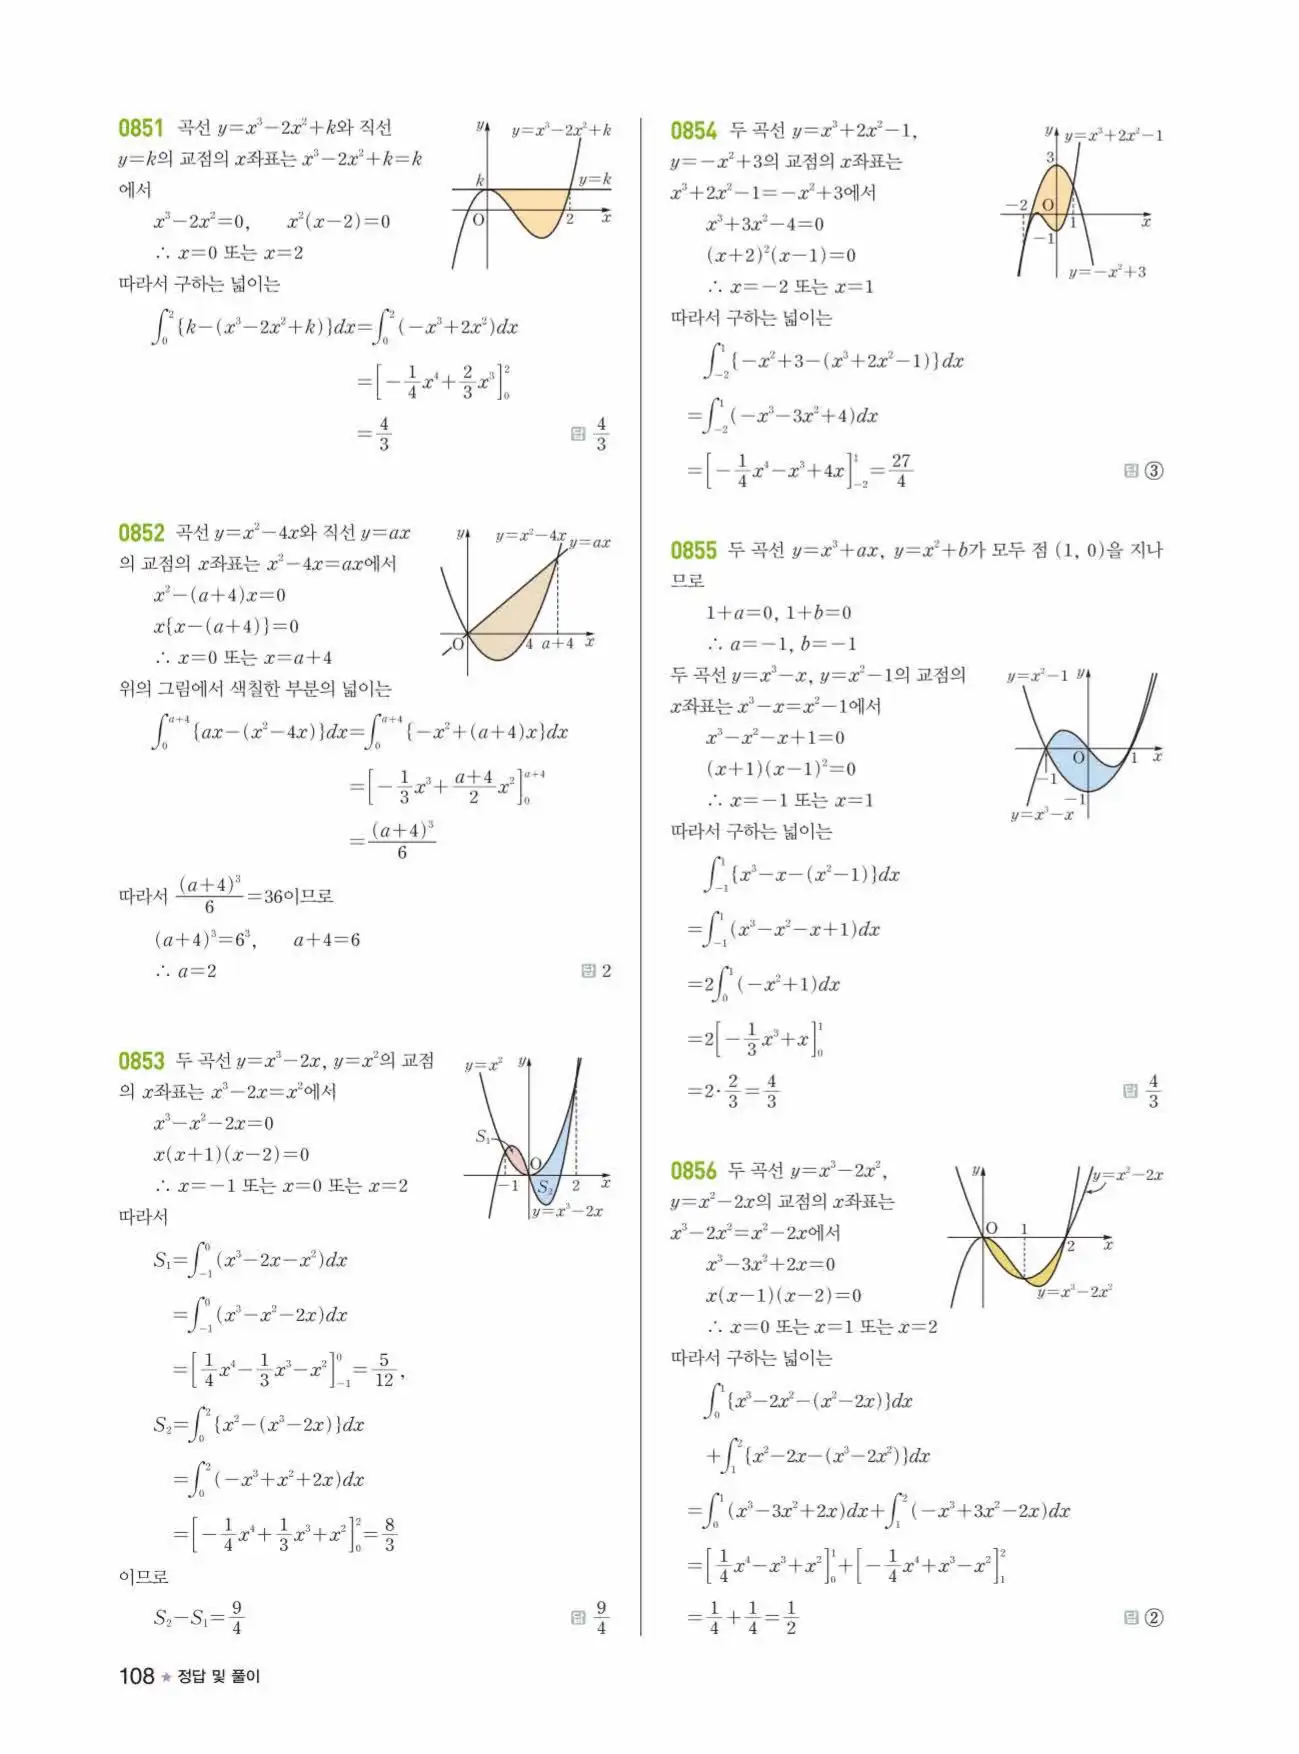 0851 곡선 y=x³-2x²+k와 직선
y=k의 교점의 x좌표는 x³-2x²+k=k
에서
x³-2x²=0, x²(x-2)=0
∴ x=0 또는 x=2
따라서 구하는 넓이는
∫₀² {k-(x³-2x²+k)}dx=∫₀² (-x³+2x²)dx
=[-1/4 x⁴+2/3 x³]₀²
=4/3 답 4/3
y y=x³-2x²+k
k y=k
O 2 x
0852 곡선 y=x²-4x와 직선 y=ax
의 교점의 x좌표는 x²-4x=ax에서
x²-(a+4)x=0
x{x-(a+4)}=0
∴ x=0 또는 x=a+4
위의 그림에서 색칠한 부분의 넓이는
∫₀^(a+4) {ax-(x²-4x)}dx=∫₀^(a+4) {-x²+(a+4)x}dx
=[-1/3 x³+(a+4)/2 x²]₀^(a+4)
=(a+4)³/6
따라서 (a+4)³/6=36이므로
(a+4)³=6³, a+4=6
∴ a=2 답 2
y y=x²-4x y=ax
O 4 a+4 x
0853 두 곡선 y=x³-2x, y=x²의 교점
의 x좌표는 x³-2x=x²에서
x³-x²-2x=0
x(x+1)(x-2)=0
∴ x=-1 또는 x=0 또는 x=2
따라서
S₁=∫₋₁⁰ (x³-2x-x²)dx
=∫₋₁⁰ (x³-x²-2x)dx
=[1/4 x⁴-1/3 x³-x²]₋₁⁰=5/12,
S₂=∫₀² {x²-(x³-2x)}dx
=∫₀² (-x³+x²+2x)dx
=[-1/4 x⁴+1/3 x³+x²]₀²=8/3
이므로
S₂-S₁=9/4 답 9/4
y=x² y
S₁
O
-1 S₂ 2 x
y=x³-2x
108 ★ 정답 및 풀이
0854 두 곡선 y=x³+2x²-1,
y=-x²+3의 교점의 x좌표는
x³+2x²-1=-x²+3에서
x³+3x²-4=0
(x+2)²(x-1)=0
∴ x=-2 또는 x=1
따라서 구하는 넓이는
∫₋₂¹ {-x²+3-(x³+2x²-1)}dx
=∫₋₂¹ (-x³-3x²+4)dx
=[-1/4 x⁴-x³+4x]₋₂¹=27/4 답 ③
y y=x³+2x²-1
3
-2 O 1 x
-1
y=-x²+3
0855 두 곡선 y=x³+ax, y=x²+b가 모두 점 (1, 0)을 지나
므로
1+a=0, 1+b=0
∴ a=-1, b=-1
두 곡선 y=x³-x, y=x²-1의 교점의
x좌표는 x³-x=x²-1에서
x³-x²-x+1=0
(x+1)(x-1)²=0
∴ x=-1 또는 x=1
따라서 구하는 넓이는
∫₋₁¹ {x³-x-(x²-1)}dx
=∫₋₁¹ (x³-x²-x+1)dx
=2∫₀¹ (-x²+1)dx
=2[-1/3 x³+x]₀¹
=2·2/3=4/3 답 4/3
y=x²-1 y
O 1 x
-1
-1
y=x³-x
0856 두 곡선 y=x³-2x²,
y=x²-2x의 교점의 x좌표는
x³-2x²=x²-2x에서
x³-3x²+2x=0
x(x-1)(x-2)=0
∴ x=0 또는 x=1 또는 x=2
따라서 구하는 넓이는
∫₀¹ {x³-2x²-(x²-2x)}dx
+∫₁² {x²-2x-(x³-2x²)}dx
=∫₀¹ (x³-3x²+2x)dx+∫₁² (-x³+3x²-2x)dx
=[1/4 x⁴-x³+x²]₀¹+[-1/4 x⁴+x³-x²]₁²
=1/4+1/4=1/2 답 ②
y y=x²-2x
O 1 2 x
y=x³-2x²